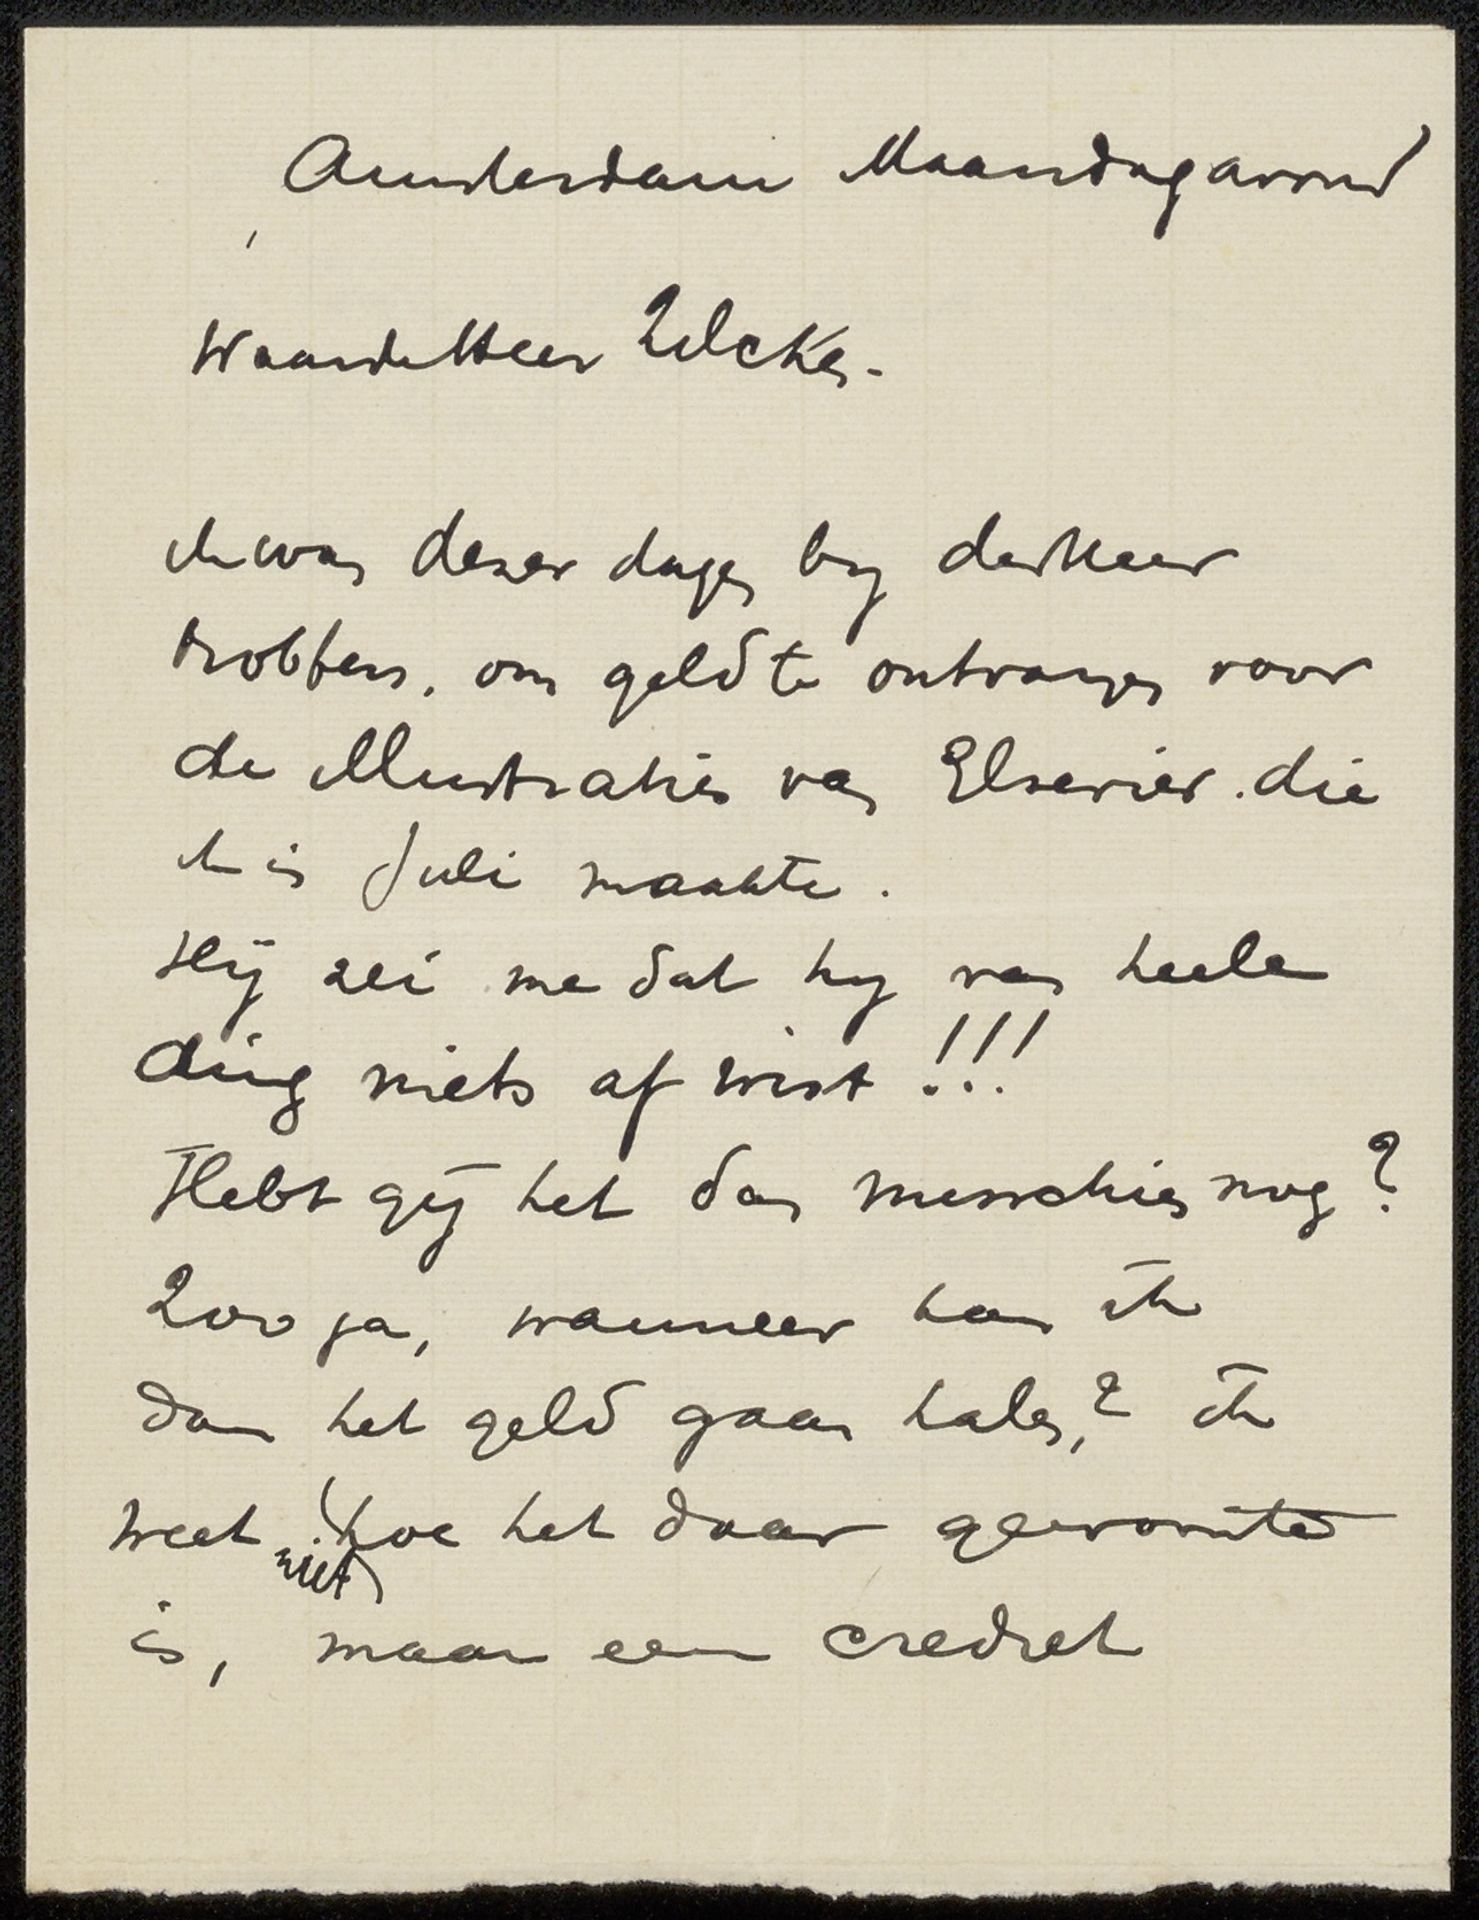 Amsterdam Maandagavond
Waarde Heer Zilcken.
ik was dezer dagen by den Heer
Robbers, om geld te ontvangen voor
de illustraties van Elsevier. die
ik in Juli maakte.
Hij zei me dat hy van heele
ding niets af wist!!!
Hebt gij het dan misschien nog?
Zoo ja, wanneer kan ik
dan het geld gaan halen? ik
weet niet hoe het daar gewoonte
is, maar een crediet